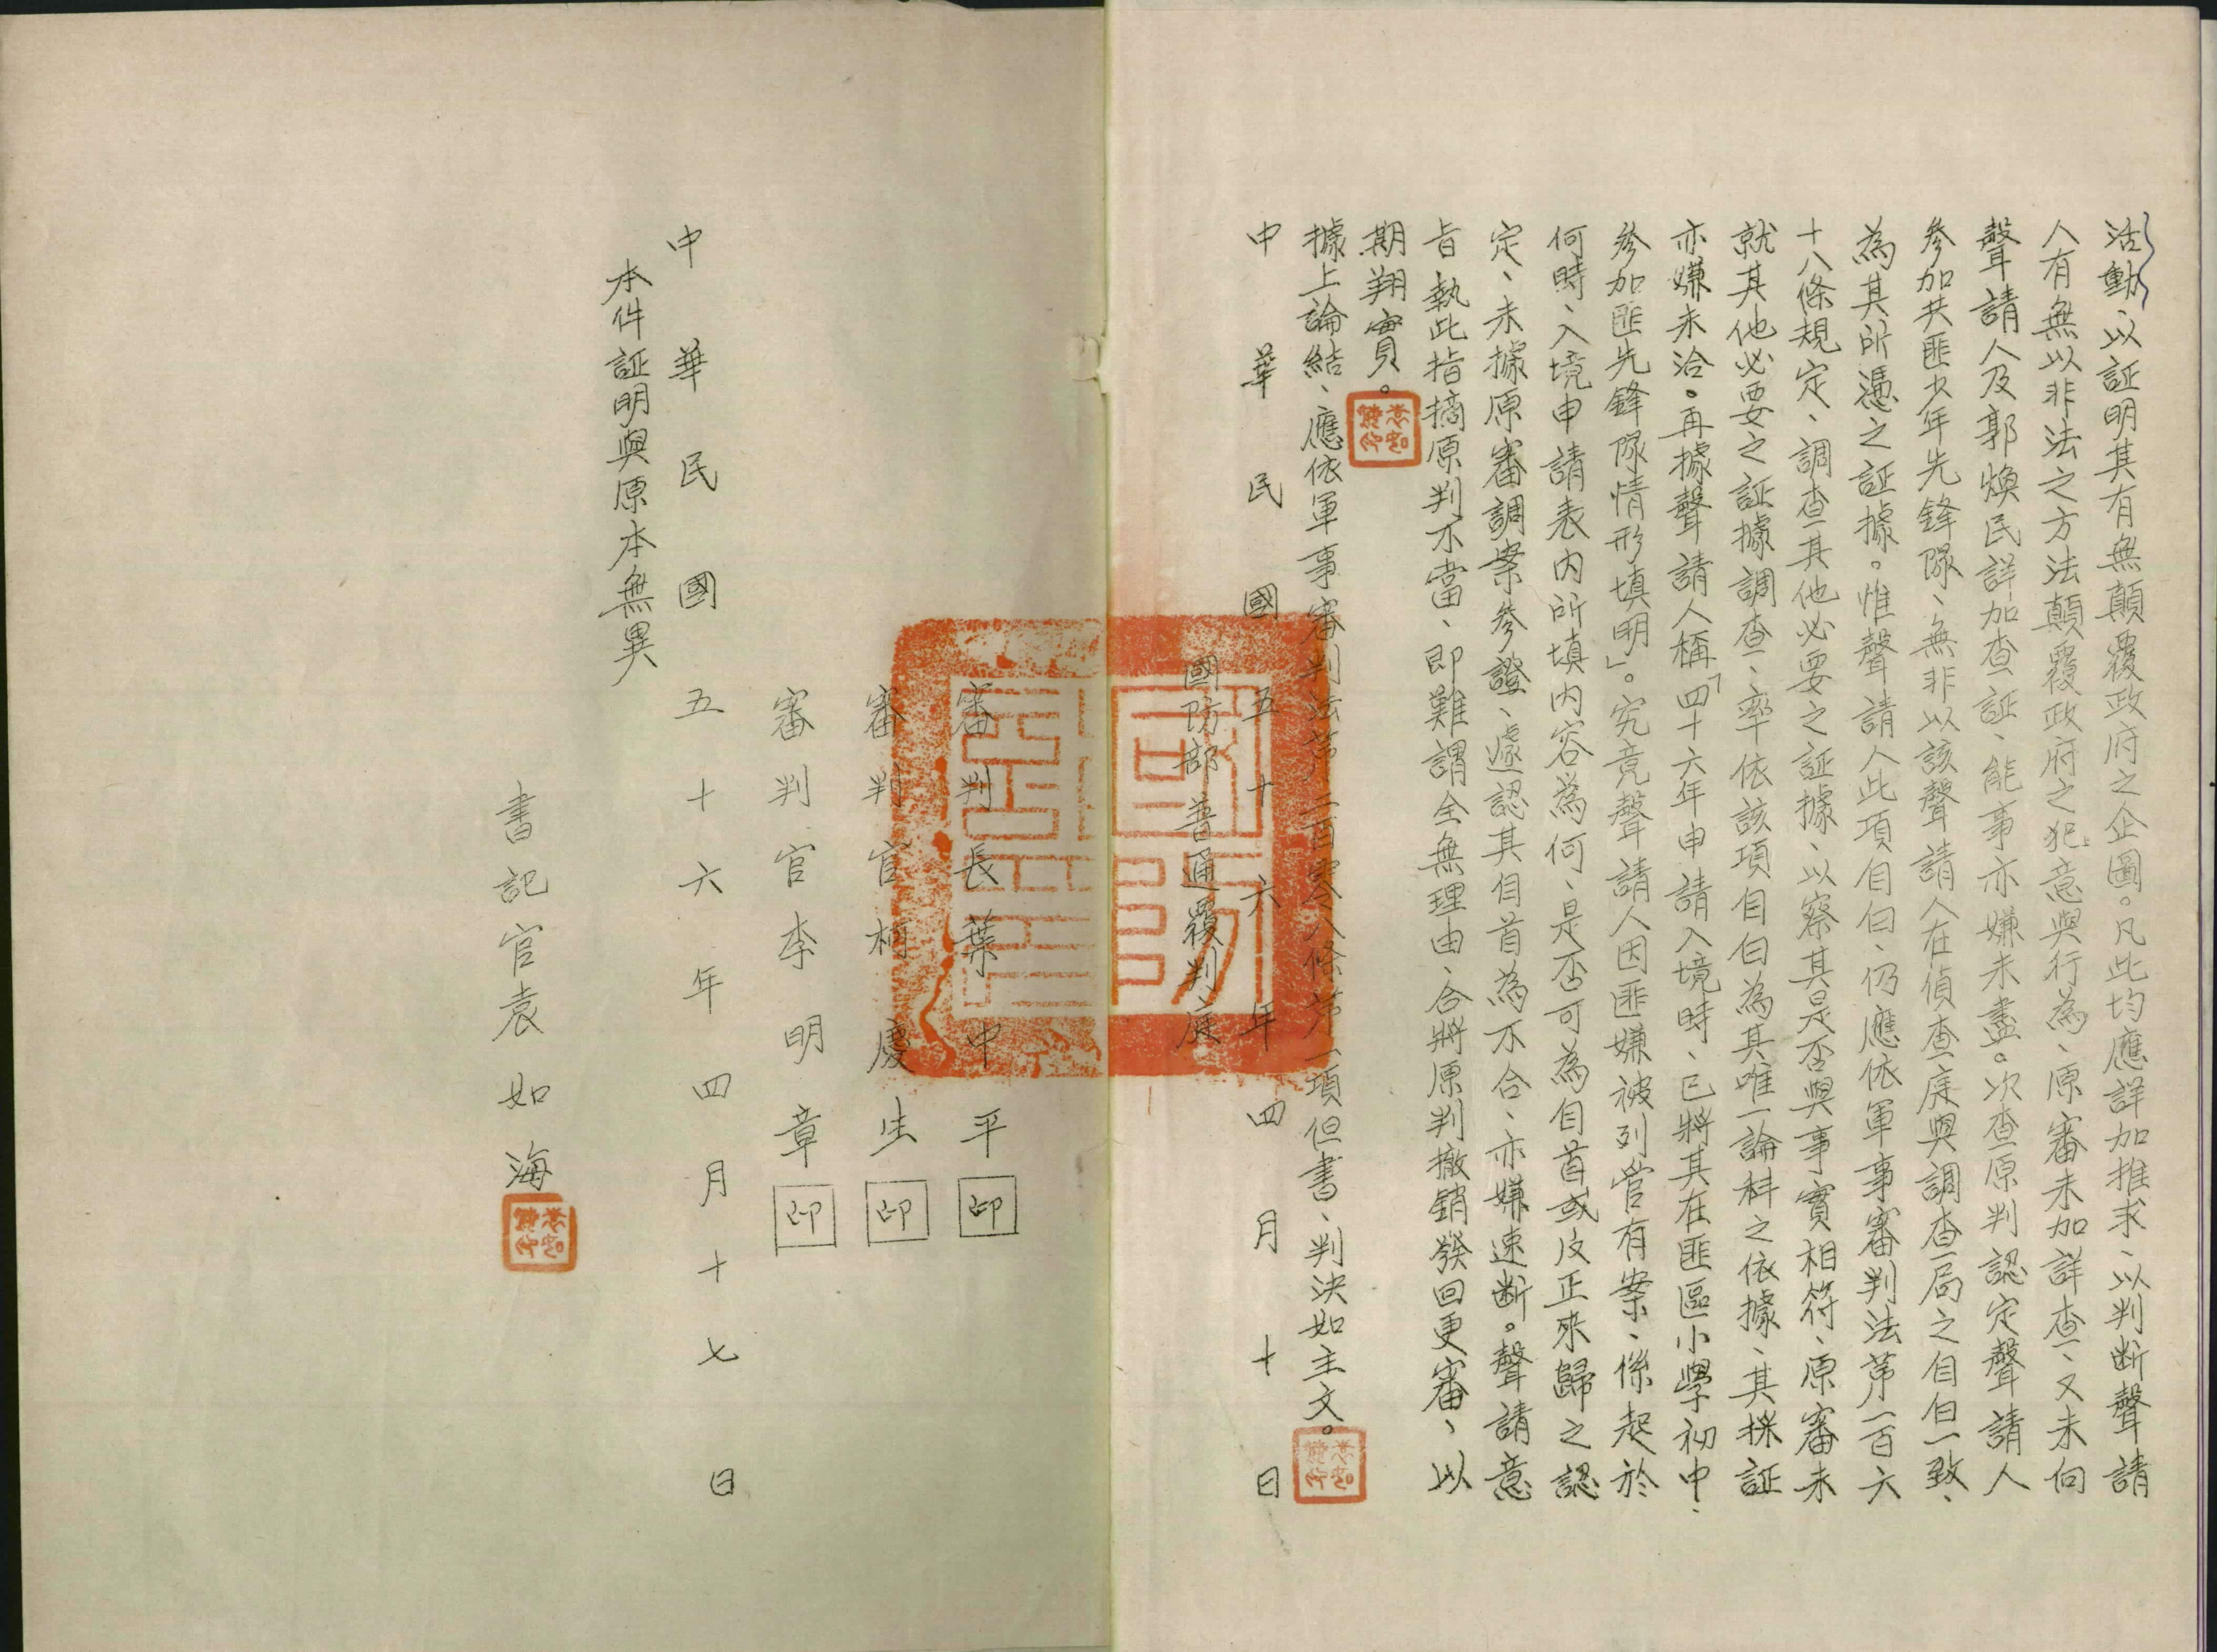 活動、以証明其有無顛覆政府之企圖。凡此均應詳加推求、以判断聲請
人有無以非法之方法顛覆政府之犯意與行為、原審未加詳查、又未向
聲請人及郭煥民詳加查証、能事亦嫌未盡。次查原判認定聲請人
參加共匪少年先鋒隊、無非以該聲請人在偵查庭與調查局之自白一致、
為其所憑之証據。惟聲請人此項自白、仍應依軍事審判法第一百六
十八條規定、調查其他必要之証據、以察其是否與事實相符、原審未
就其他必要之証據調查、率依該項自白為其唯一論科之依據、其採証
亦嫌未洽。再據聲請人稱「四十六年申請入境時、已將其在匪區小學初中、
參加匪先鋒隊情形填明」。究竟聲請人因匪嫌被列管有案、係起於
何時、入境申請表內所填內容為何、是否可為自首或反正來歸之認
定、未據原審調案參證、遽認其自首為不合、亦嫌速断。聲請意
旨執此指摘原判不當、即難謂全無理由、合將原判撤銷發回更審、以
期翔實。
據上論結、應依軍事審判法第二百零八條第一項但書、判決如主文。
中華民國五十六年四月十日
國防部普通覆判庭
審判長葉中平印
審判官柯慶生印
審判官李明章印
中華民國五十六年四月十七日
本件証明與原本無異
書記官袁如海